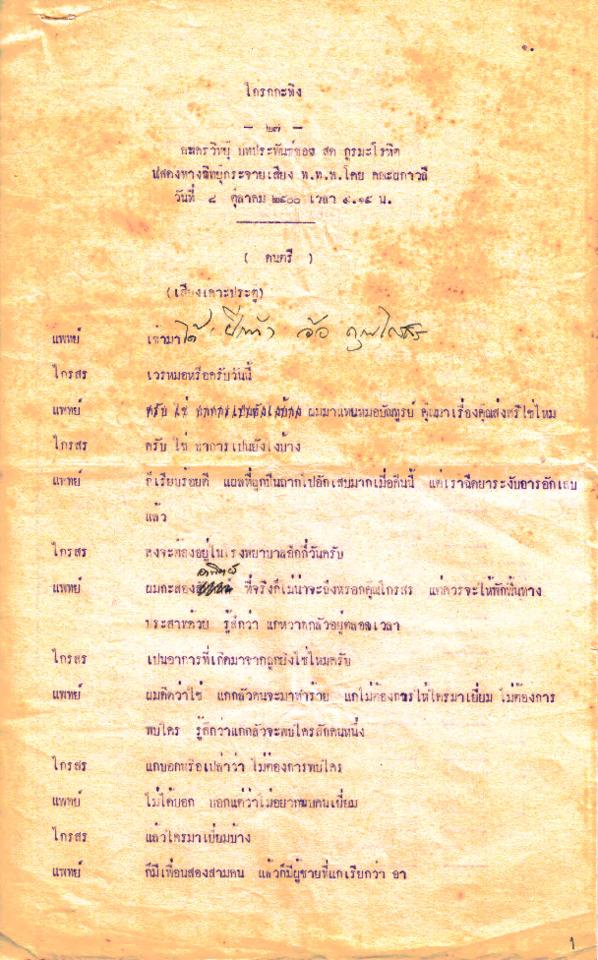 ๑.
ไกรกกะทิง
- ๒๗ -
ละครวิทยุ บทประพันธ์ของ สด กูรมะโรหิต
แสดงทางวิทยุกระจายเสียง ท.ท.ท.โดย คณะผกาวลี
วันที่ ๘ ตุลาคม ๒๕๐๐ เวลา ๙.๑๕ น.
( ดนตรี )
(เสียงเคาะประตู)
แพทย์ เข้ามาได้ อ้อ คุณไกรสร
ไกรสร เวรหมอหรือครับวันนี้
แพทย์ ครับ ใช่ อาการเปนยังไงบ้าง ผมมาแทนหมอบัณฑูรย์ คุณมาเรื่องคุณส่งศรีใช่ไหม
ไกรสร ครับ ใช่ อาการเปนยังไงบ้าง
แพทย์ ก็เรียบร้อยดี แผลที่ถูกปืนถากไปอักเสบมากเมื่อคืนนี้ แต่เราฉีดยาระงับอารอักเสบ
แล้ว
ไกรสร คงจะต้องอยู่ในโรงพยาบาลอีกกี่วันครับ
แพทย์ ผมกะสองอาทิตย์ ที่จริงก็ไม่น่าจะถึงหรอกคุณไกรสร แต่ควรจะให้พักฟื้นทาง
ประสาทด้วย รู้สึกว่า แกหวาดกลัวอยู่ตลอดเวลา
ไกรสร เปนอาการที่เกิดมาจากถูกยิงใช่ไหมครับ
แพทย์ ผมคิดว่าใช่ แกกลัวคนจะมาทำร้าย แกไม่ต้องการให้ใครมาเยี่ยม ไม่ต้องการ
พบใคร รู้สึกว่าแกกลัวจะพบใครสักคนหนึ่ง
ไกรสร แกบอกหรือเปล่าว่า ไม่ต้องการพบใคร
แพทย์ ไม่ได้บอก บอกแต่ว่าไม่อยากพบคนเยี่ยม
ไกรสร แล้วใครมาเยี่ยมบ้าง
แพทย์ ก็มีเพื่อนสองสามคน แล้วก็มีผู้ชายที่แกเรียกว่า อา
1